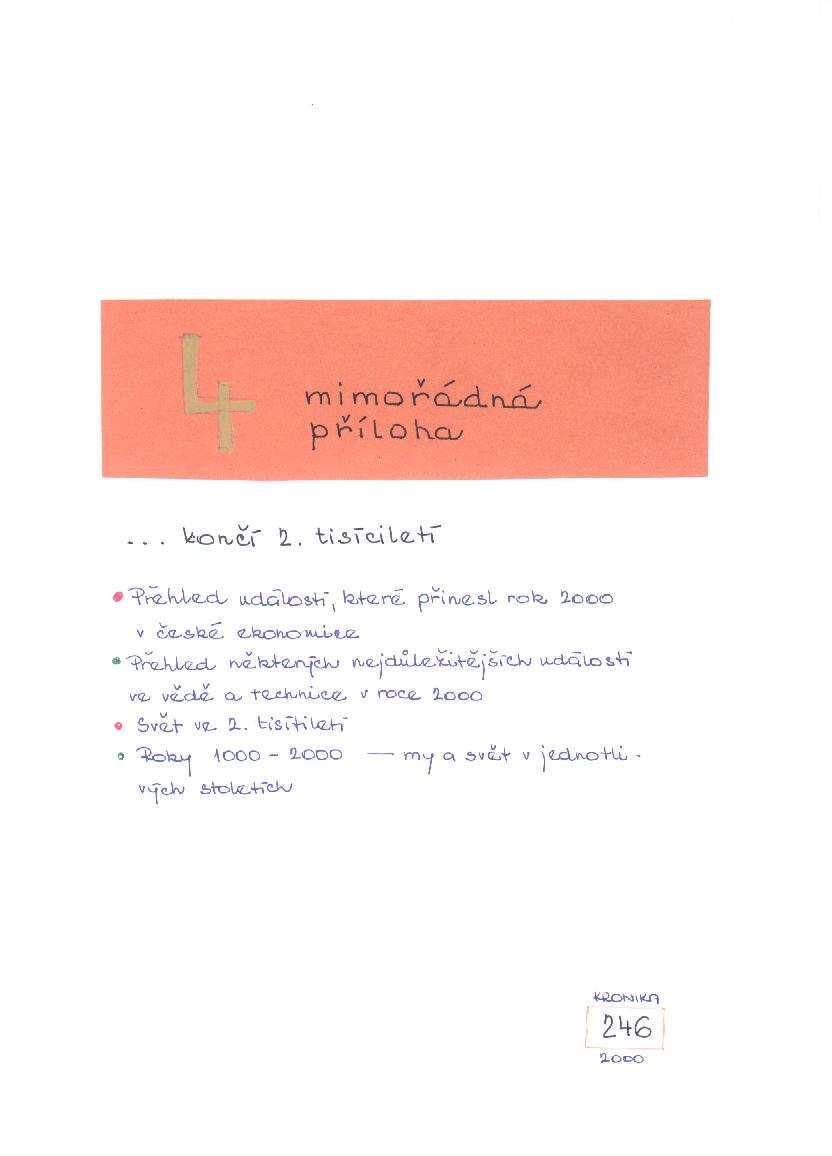 4 mimořádná
příloha
... končí 2. tisíciletí
• Přehled událostí, které přinesl rok 2000
v české ekonomice
• Přehled některých nejdůležitějších událostí
ve vědě a technice v roce 2000
• Svět ve 2. tisítiletí
• Roky 1000 - 2000 — my a svět v jednotli-
vých stoletích
KRONIKA
246
2000